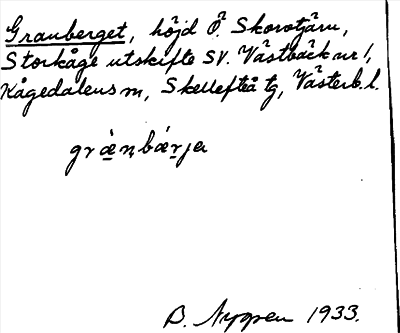 Granberget, höjd Ö. Skorotjärn,
Storkåge utskifte SV. Västbäck nr 1,
Kågedalens m, Skellefteå tg, Västerb. l.
græ̀nbǽrjer
B. Nygren 1933.